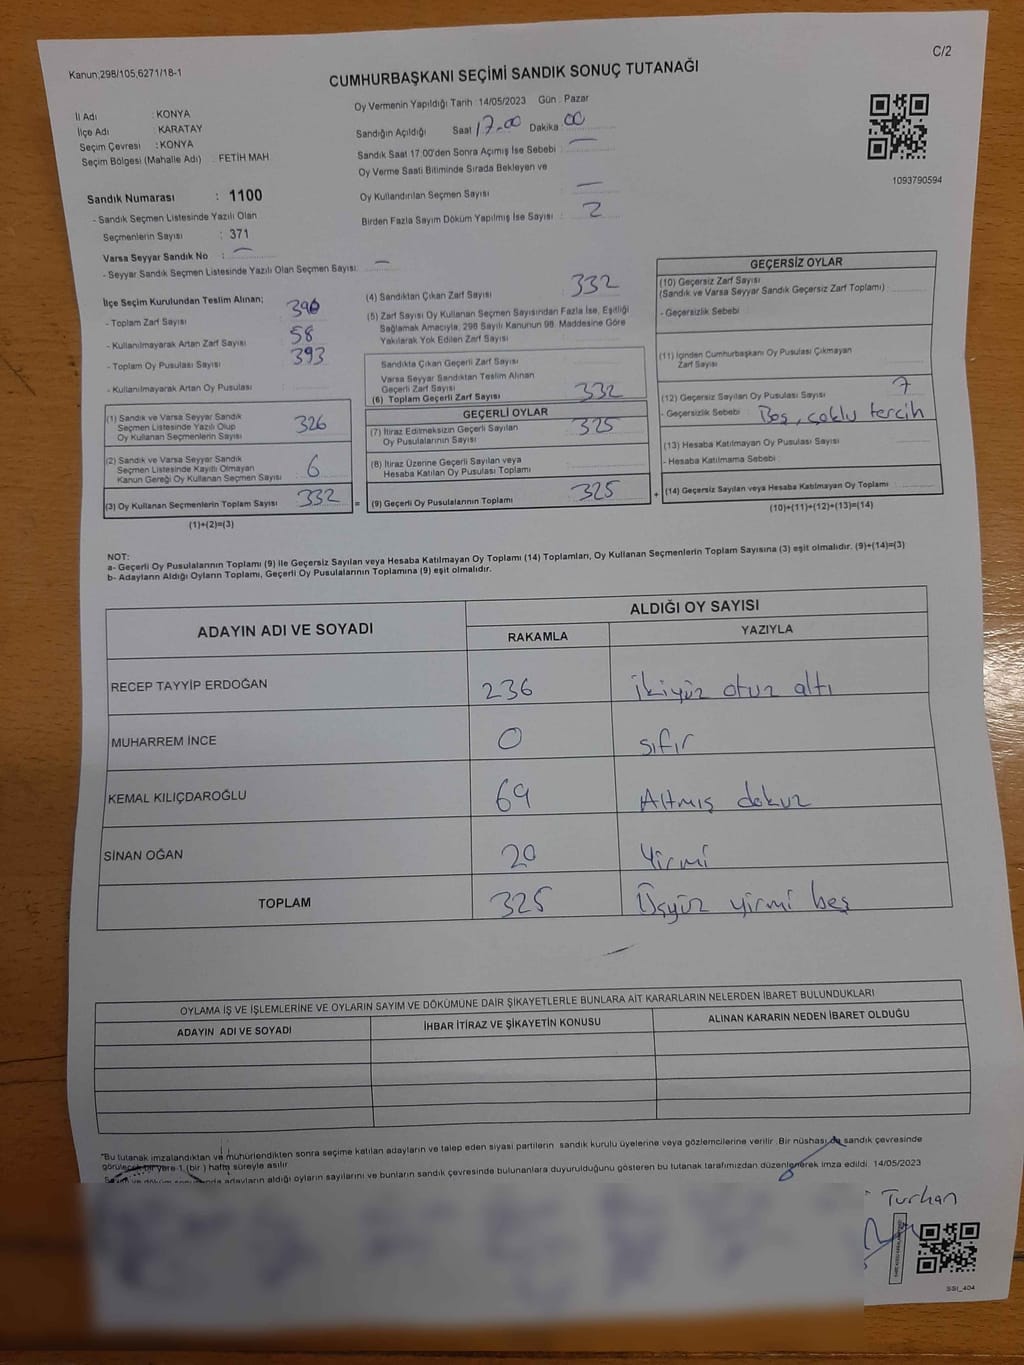 Kanun;298/105,6271/18-1
C/2
CUMHURBAŞKANI SEÇİMİ SANDIK SONUÇ TUTANAĞI
İl Adı : KONYA
İlçe Adı : KARATAY
Seçim Çevresi : KONYA
Seçim Bölgesi (Mahalle Adı) : FETİH MAH
Sandık Numarası : 1100
- Sandık Seçmen Listesinde Yazılı Olan
Seçmenlerin Sayısı : 371
Varsa Seyyar Sandık No : —
- Seyyar Sandık Seçmen Listesinde Yazılı Olan Seçmen Sayısı: —
Oy Vermenin Yapıldığı Tarih : 14/05/2023 Gün : Pazar
Sandığın Açıldığı Saat 17.00 Dakika 00
Sandık Saat 17.00'den Sonra Açımış İse Sebebi : —
Oy Verme Saati Bitiminde Sırada Bekleyen ve
Oy Kullandırılan Seçmen Sayısı : —
Birden Fazla Sayım Döküm Yapılmış İse Sayısı : 2
1093790594
İlçe Seçim Kurulundan Teslim Alınan;
- Toplam Zarf Sayısı : 390
- Kullanılmayarak Artan Zarf Sayısı : 58
- Toplam Oy Pusulası Sayısı : 393
- Kullanılmayarak Artan Oy Pusulası :
(1) Sandık ve Varsa Seyyar Sandık
Seçmen Listesinde Yazılı Olup
Oy Kullanan Seçmenlerin Sayısı : 326
(2) Sandık ve Varsa Seyyar Sandık
Seçmen Listesinde Kayıtlı Olmayan
Kanun Gereği Oy Kullanan Seçmen Sayısı : 6
(3) Oy Kullanan Seçmenlerin Toplam Sayısı : 332 =
(1)+(2)=(3)
(4) Sandıktan Çıkan Zarf Sayısı : 332
(5) Zarf Sayısı Oy Kullanan Seçmen Sayısından Fazla İse, Eşitliği
Sağlamak Amacıyla, 298 Sayılı Kanunun 98. Maddesine Göre
Yakılarak Yok Edilen Zarf Sayısı :
Sandıkta Çıkan Geçerli Zarf Sayısı :
Varsa Seyyar Sandıktan Teslim Alınan
Geçerli Zarf Sayısı :
(6) Toplam Geçerli Zarf Sayısı : 332
GEÇERLİ OYLAR
(7) İtiraz Edilmeksizin Geçerli Sayılan
Oy Pusulalarının Sayısı : 325
(8) İtiraz Üzerine Geçerli Sayılan veya
Hesaba Katılan Oy Pusulası Toplamı :
(9) Geçerli Oy Pusulalarının Toplamı : 325 +
GEÇERSİZ OYLAR
(10) Geçersiz Zarf Sayısı
(Sandık ve Varsa Seyyar Sandık Geçersiz Zarf Toplamı) :
- Geçersizlik Sebebi :
(11) İçinden Cumhurbaşkanı Oy Pusulası Çıkmayan
Zarf Sayısı :
(12) Geçersiz Sayılan Oy Pusulası Sayısı : 7
- Geçersizlik Sebebi : Boş, çoklu tercih
(13) Hesaba Katılmayan Oy Pusulası Sayısı :
- Hesaba Katılmama Sebebi :
(14) Geçersiz Sayılan veya Hesaba Katılmayan Oy Toplamı :
(10)+(11)+(12)+(13)=(14)
NOT:
a- Geçerli Oy Pusulalarının Toplamı (9) ile Geçersiz Sayılan veya Hesaba Katılmayan Oy Toplamı (14) Toplamları, Oy Kullanan Seçmenlerin Toplam Sayısına (3) eşit olmalıdır. (9)+(14)=(3)
b- Adayların Aldığı Oyların Toplamı, Geçerli Oy Pusulalarının Toplamına (9) eşit olmalıdır.
ADAYIN ADI VE SOYADI
ALDIĞI OY SAYISI
RAKAMLA YAZIYLA
RECEP TAYYİP ERDOĞAN 236 ikiyüz otuz altı
MUHARREM İNCE 0 sıfır
KEMAL KILIÇDAROĞLU 69 Altmış dokuz
SİNAN OĞAN 20 Yirmi
TOPLAM 325 Üçyüz yirmi beş
OYLAMA İŞ VE İŞLEMLERİNE VE OYLARIN SAYIM VE DÖKÜMÜNE DAİR ŞİKAYETLERLE BUNLARA AİT KARARLARIN NELERDEN İBARET BULUNDUKLARI
ADAYIN ADI VE SOYADI İHBAR İTİRAZ VE ŞİKAYETİN KONUSU ALINAN KARARIN NEDEN İBARET OLDUĞU
"Bu tutanak imzalandıktan ve mühürlendikten sonra seçime katılan adayların ve talep eden siyasi partilerin sandık kurulu üyelerine veya gözlemcilerine verilir .Bir nüshası da sandık çevresinde
görülecek bir yere 1 (bir ) hafta süreyle asılır
Sayım ve döküm sonucunda adayların aldığı oyların sayılarını ve bunların sandık çevresinde bulunanlara duyurulduğunu gösteren bu tutanak tarafımızdan düzenlenerek imza edildi. 14/05/2023
Turhan
SSI_404